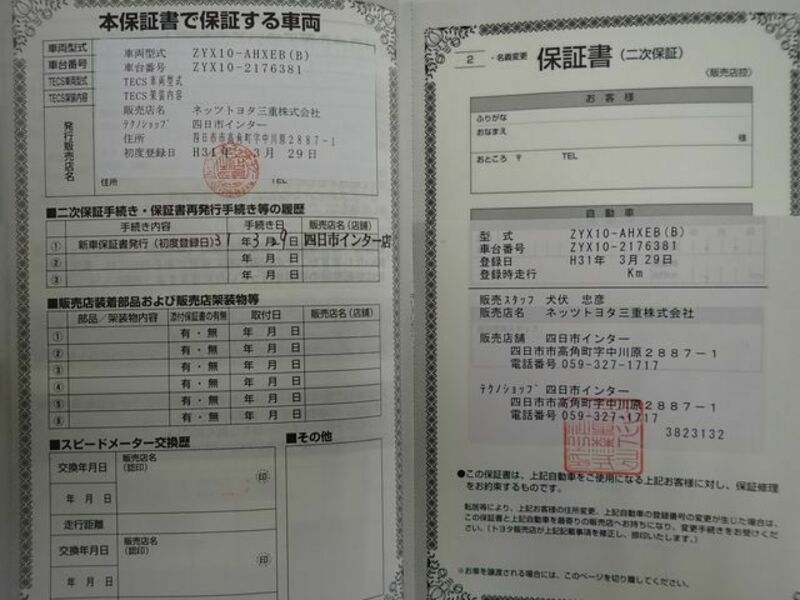 本保証書で保証する車両
車両型式
車台番号
TECS車両型式
TECS架装内容
発行販売店名
車両型式 ZYX10-AHXEB(B)
車台番号 ZYX10-2176381
TECS車両型式
TECS架装内容
販売店名 ネッツトヨタ三重株式会社
テクノショップ 四日市インター
住所 四日市市高角町字中川原2887-1
初度登録日 H31年 3月 29日
住所 TEL
■二次保証手続き・保証書再発行手続き等の履歴
手続き内容 手続き日 販売店名(店舗)
① 新車保証書発行(初度登録日) 31年3月29日 四日市インター店
② 年 月 日
③ 年 月 日
■販売店装着部品および販売店架装物等
部品/架装物内容 添付保証書の有無 取付日 販売店名(店舗)
① 有・無 年 月 日
② 有・無 年 月 日
③ 有・無 年 月 日
④ 有・無 年 月 日
⑤ 有・無 年 月 日
⑥ 有・無 年 月 日
■スピードメーター交換歴
交換年月日 販売店名(認印) 印
年 月 日
走行距離
交換年月日 販売店名(認印) 印
年 月 日
■その他
2 ・名義変更 保証書(二次保証)
〈販売店控〉
お客様
ふりがな
おなまえ 様
おところ 〒 TEL
自動車
型 式 ZYX10-AHXEB(B)
車台番号 ZYX10-2176381
登録日 H31年 3月29日
登録時走行 Km
販売スタッフ 犬伏 忠彦
販売店名 ネッツトヨタ三重株式会社
販売店舗 四日市インター
四日市市高角町字中川原2887-1
電話番号 059-327-1717
テクノショップ 四日市インター
四日市市高角町字中川原2887-1
電話番号 059-327-1717
3823132
●この保証書は、上記自動車をご使用になる上記お客様に対し、保証修理
をお約束するものです。
転居等により、上記お客様の住所変更、上記自動車の登録番号の変更が生じた場合は、
この保証書と上記自動車を最寄りの販売店へお持ちになり、変更手続きをお受けくだ
さい。(トヨタ販売店が上記記載事項を修正し、捺印いたします。)
※お車を譲渡される場合には、このページを切り離してください。